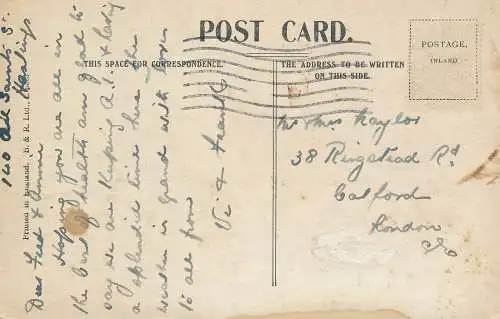 POST CARD.
THIS SPACE FOR CORRESPONDENCE.
THE ADDRESS TO BE WRITTEN
ON THIS SIDE.
POSTAGE.
INLAND
Printed in England. B. & R. Ltd.,
140 All Saints St.
Hastings
Dear Fred & Annie
Hoping you are all in
the best of health am glad to
say we are keeping A.1. & having
a splendid time here the
weather is grand with Love
to all from
Vi & Frank
Mr & Mrs Naylor
38 Ringstead Rd
Catford
London
S.E.